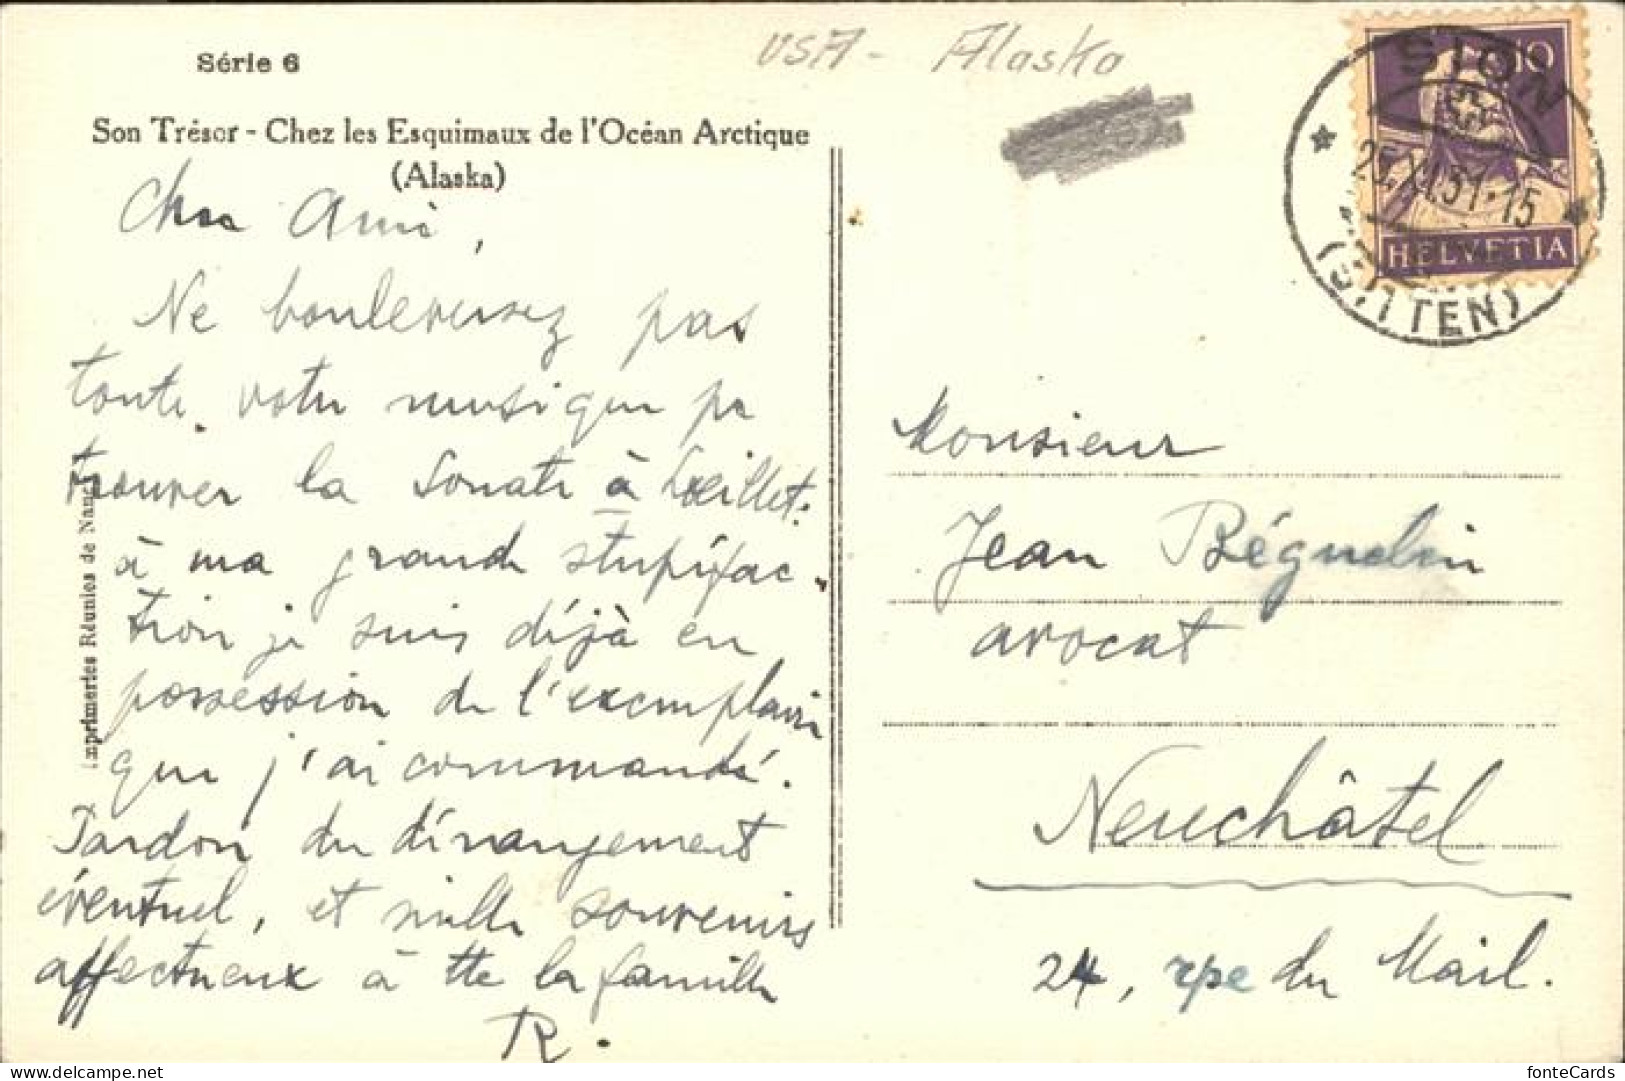 USA - Alaska
Série 6
Son Trésor - Chez les Esquimaux de l'Océan Arctique
(Alaska)
Cher Ami,
Ne bouleversez pas
toute votre musique pr
trouver la Sonate à Lœillet:
à ma grande stupéfac-
tion je suis déjà en
possession de l'exemplaire
que j'ai commandé.
Pardon du dérangement
éventuel, et mille souvenirs
affectueux à tte la famille
R.
Imprimeries Réunies de Nancy
10
HELVETIA
SION
25. 31-15
(SITTEN)
Monsieur
Jean Béguelin
avocat
Neuchâtel
24, rue du Mail.
fonteCards